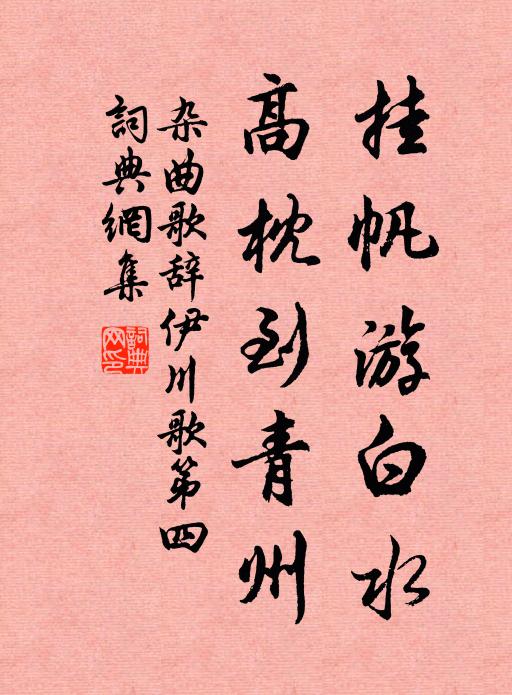 挂帆游白水
高枕到青州
杂曲歌辞伊川歌第四
詞典網集
詞典网印